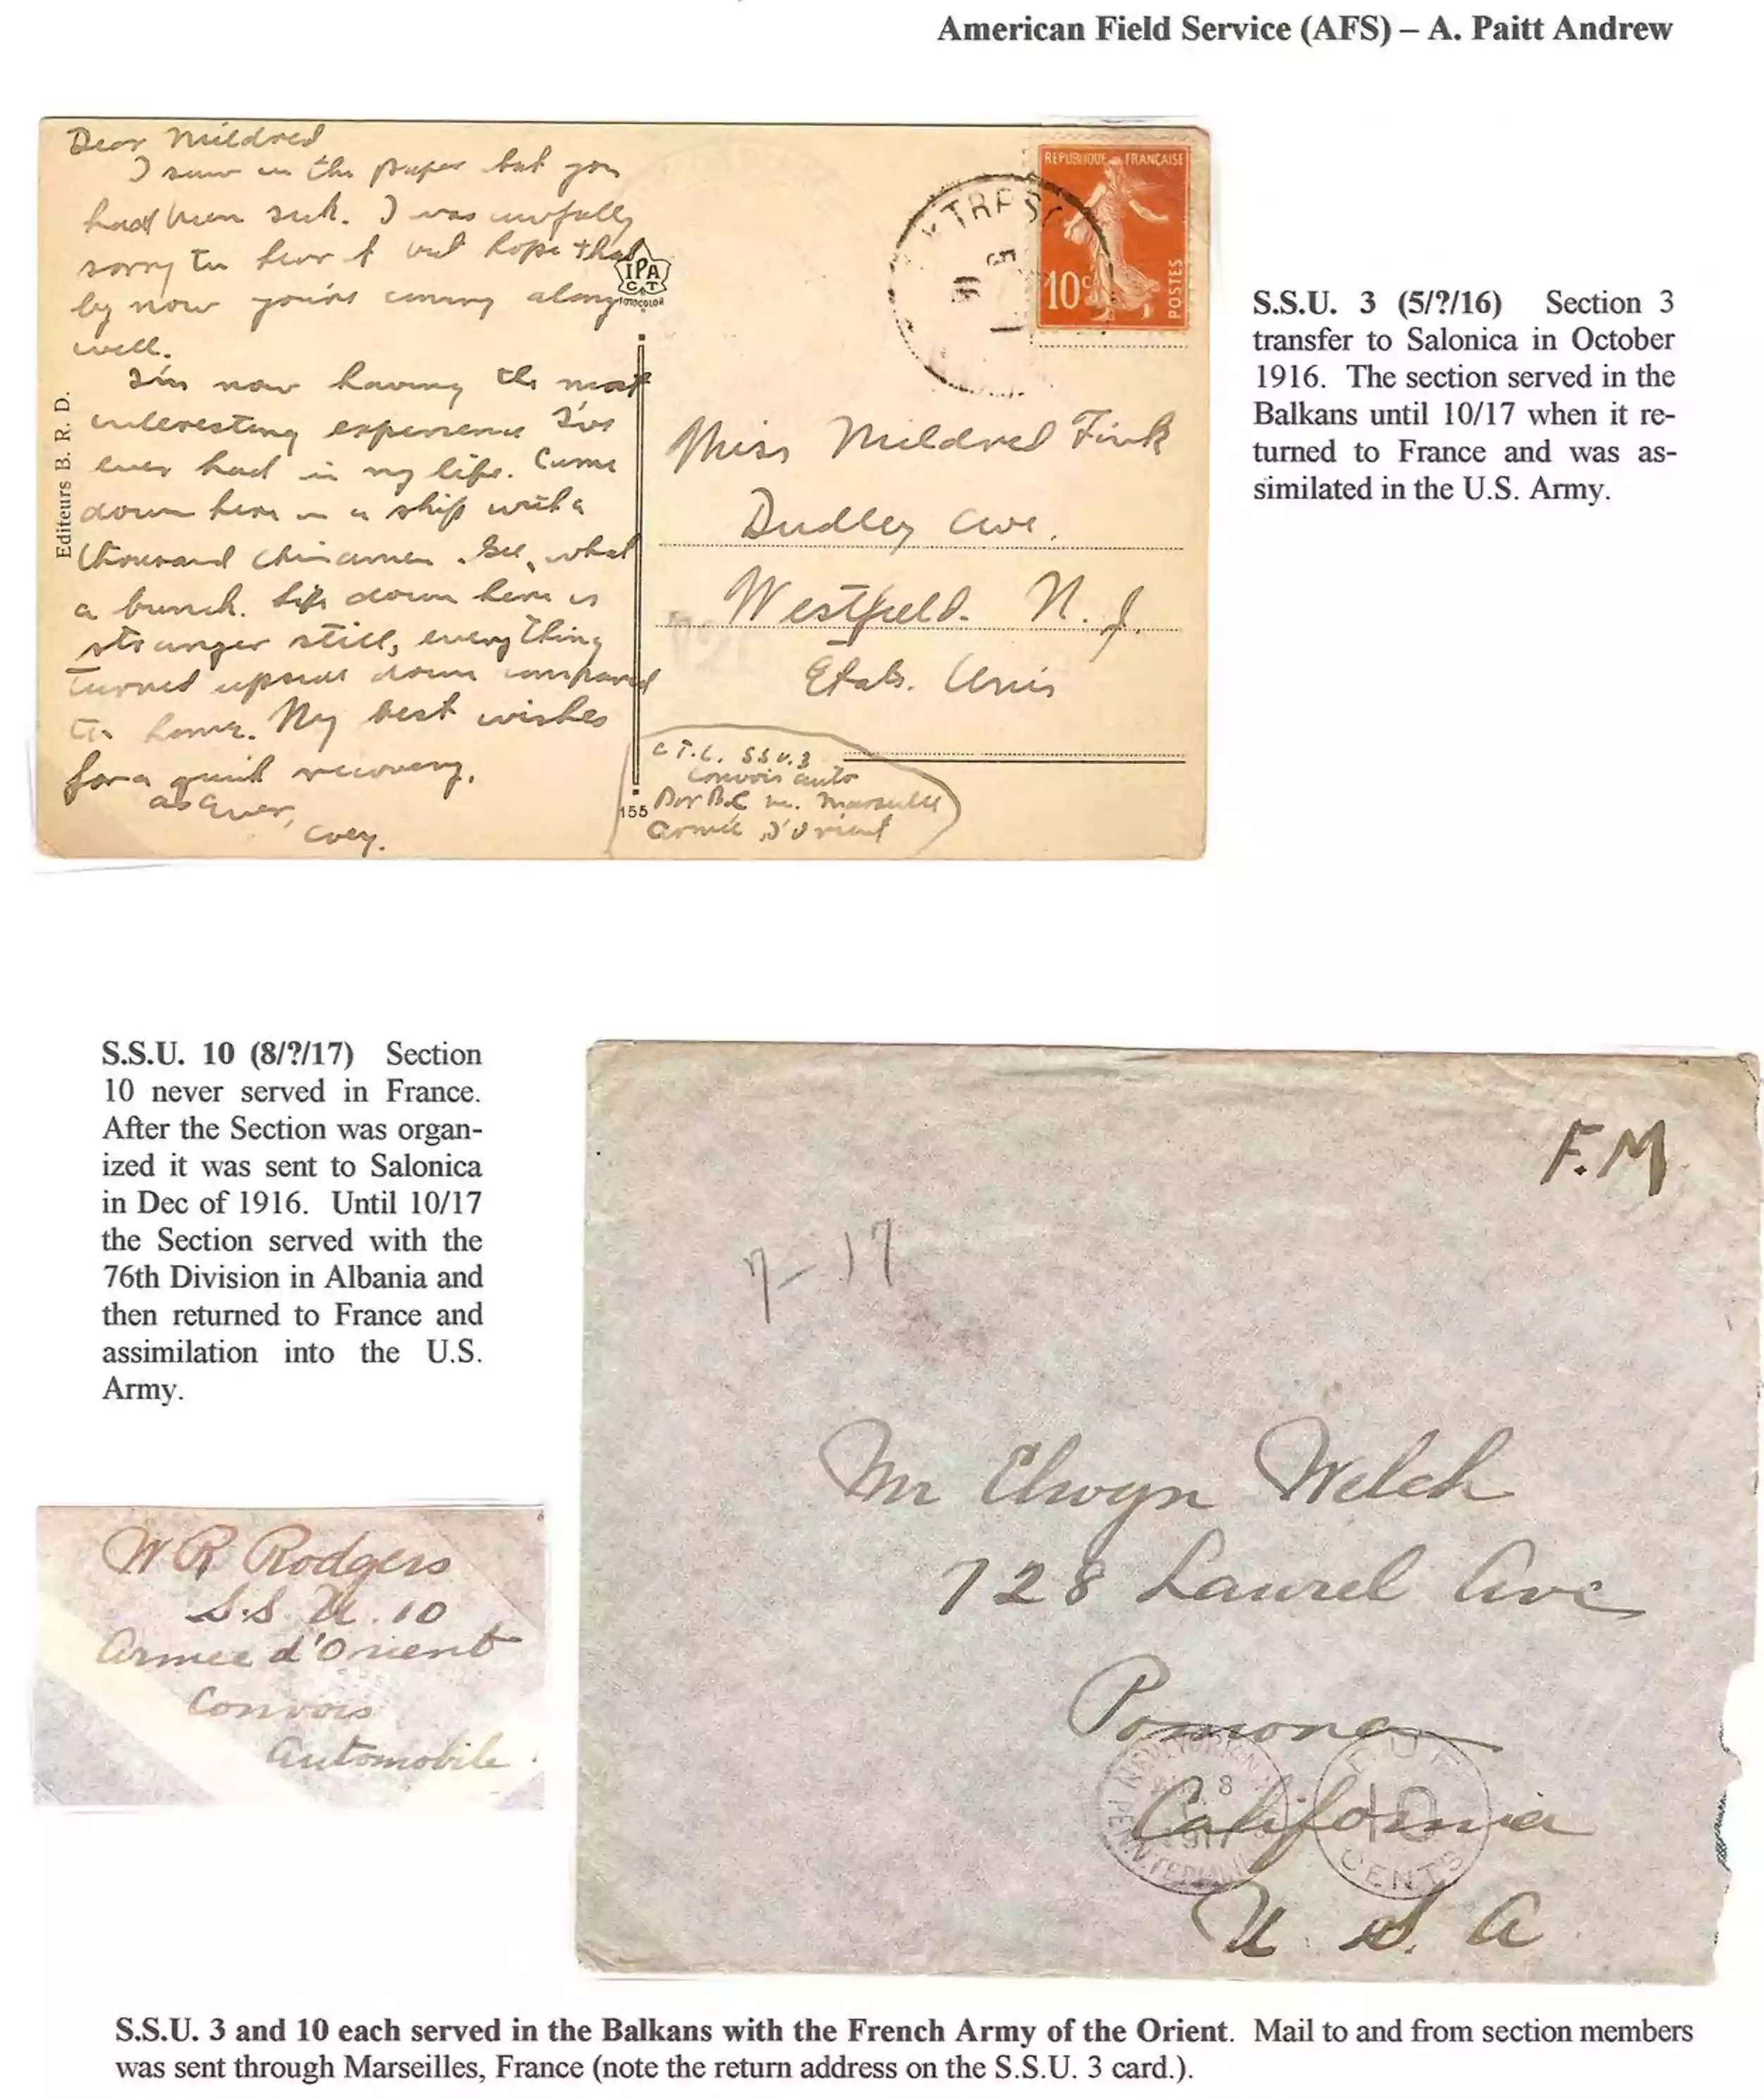 American Field Service (AFS) – A. Paitt Andrew
Dear Mildred
I saw in the paper that you
had been sick. I was awfully
sorry to hear it and hope that
by now you're coming along
well.
I'm now having the most
interesting experience I've
ever had in my life. Came
down here in a ship with a
thousand chinamen. Gee, what
a bunch. Life down here is
stranger still, everything
turned upside down compared
to home. My best wishes
for a quick recovery.
as ever,
Coey.
Editeurs B. R. D.
IPA
CT
155
REPUBLIQUE FRANÇAISE
10c
POSTES
Miss Mildred Fink
Dudley Ave.
Westfield. N. J.
Etats. Unis
S.S.U. 3
Convois auto
Par B.C. M. Marseilles
Armée d'Orient
S.S.U. 3 (5/?/16) Section 3
transfer to Salonica in October
1916. The section served in the
Balkans until 10/17 when it re-
turned to France and was as-
similated in the U.S. Army.
S.S.U. 10 (8/?/17) Section
10 never served in France.
After the Section was organ-
ized it was sent to Salonica
in Dec of 1916. Until 10/17
the Section served with the
76th Division in Albania and
then returned to France and
assimilation into the U.S.
Army.
W R Rodgers
S.S. U. 10
Armee d'Orient
Convois
Automobile
F.M
7-17
Mr Elwyn Welch
728 Laurel Ave
Pomona
California
U. S. A
8
1917
DUE
10
CENTS
S.S.U. 3 and 10 each served in the Balkans with the French Army of the Orient. Mail to and from section members
was sent through Marseilles, France (note the return address on the S.S.U. 3 card.).